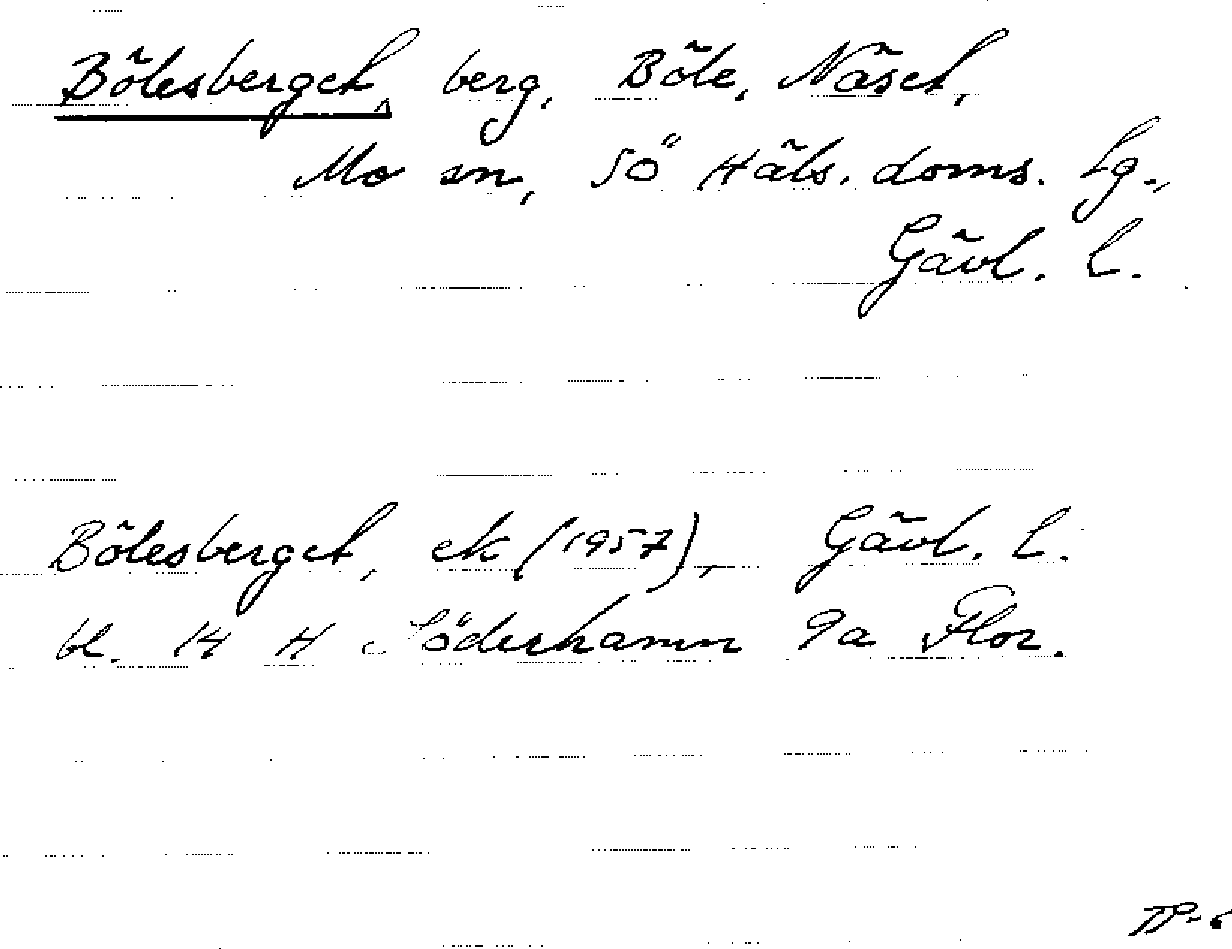 Bölesberget, berg, Böle, Näset,
Mo sn, Sö Häls. doms. lg.,
Gävl. l.
Bölesberget, ek (1957), Gävl. l.
bl. 14 H Söderhamn 9a Flor.